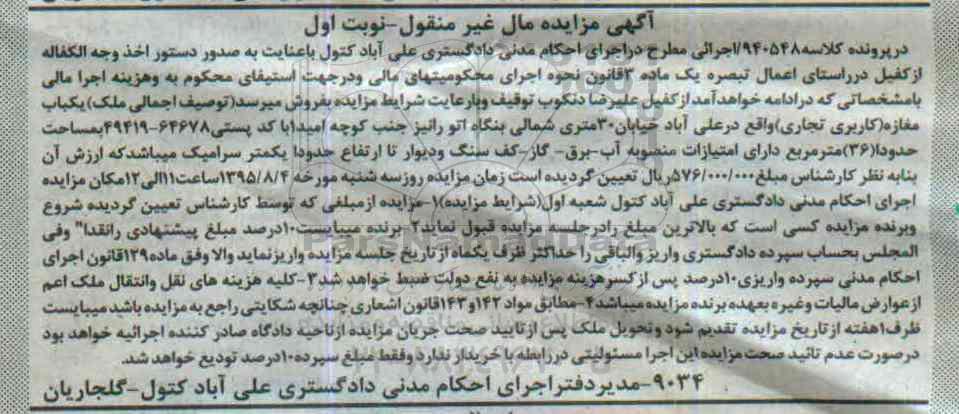 آگهی مزایده مال غیر منقول-نوبت اول
درپرونده کلاسه۹۴۰۵۴۸/اجرائی مطرح دراجرای احکام مدنی دادگستری علی آباد کتول باعنایت به صدور دستور اخذ وجه الکفاله
ازکفیل درراستای اعمال تبصره یک ماده ۳قانون نحوه اجرای محکومیتهای مالی ودرجهت استیفای محکوم به وهزینه اجرا مالی
بامشخصاتی که درادامه خواهدآمدازکفیل علیرضا دنکوب توقیف وبارعایت شرایط مزایده بفروش میرسد(توصیف اجمالی ملک)یکباب
مغازه(کاربری تجاری)واقع درعلی آباد خیابان۳۰متری شمالی بنگاه اتو رانیز جنب کوچه امید۱با کد پستی۶۴۶۷۸-۴۹۴۱۹بمساحت
حدودا(۳۶)مترمربع دارای امتیازات منصوبه آب-برق- گاز-کف سنگ ودیوار تا ارتفاع حدودا یکمتر سرامیک میباشدکه ارزش آن
بنابه نظر کارشناس مبلغ۵۷۶/۰۰۰/۰۰۰ریال تعیین گردیده است زمان مزایده روزسه شنبه مورخه ۱۳۹۵/۸/۴ساعت۱۱الی۱۲مکان مزایده
اجرای احکام مدنی دادگستری علی آباد کتول شعبه اول(شرایط مزایده)۱-مزایده ازمبلغی که توسط کارشناس تعیین گردیده شروع
وبرنده مزایده کسی است که بالاترین مبلغ رادرجلسه مزایده قبول نماید۲-برنده میبایست۱۰درصد مبلغ پیشنهادی رانقدا" وفی
المجلس بحساب سپرده دادگستری واریز والباقی را حداکثر ظرف یکماه ازتاریخ جلسه مزایده واریزنماید والا وفق ماده۱۲۹قانون اجرای
احکام مدنی سپرده واریزی۱۰درصد پس ازکسرهزینه مزایده به نفع دولت ضبط خواهد شد۳-کلیه هزینه های نقل وانتقال ملک اعم
ازعوارض مالیات وغیره بعهده برنده مزایده میباشد۴-مطابق مواد ۱۴۲و۱۴۳قانون اشعاری چنانچه شکایتی راجع به مزایده باشد میبایست
ظرف۱هفته ازتاریخ مزایده تقدیم شود وتحویل ملک پس ازتایید صحت جریان مزایده ازناحیه دادگاه صادر کننده اجرائیه خواهد بود
درصورت عدم تائید صحت مزایده این اجرا مسئولیتی دررابطه با خریدار ندارد وفقط مبلغ سپرده۱۰درصد تودیع خواهد شد.
۹۰۳۴-مدیردفتراجرای احکام مدنی دادگستری علی آباد کتول-گلجاریان
ParsNamadData